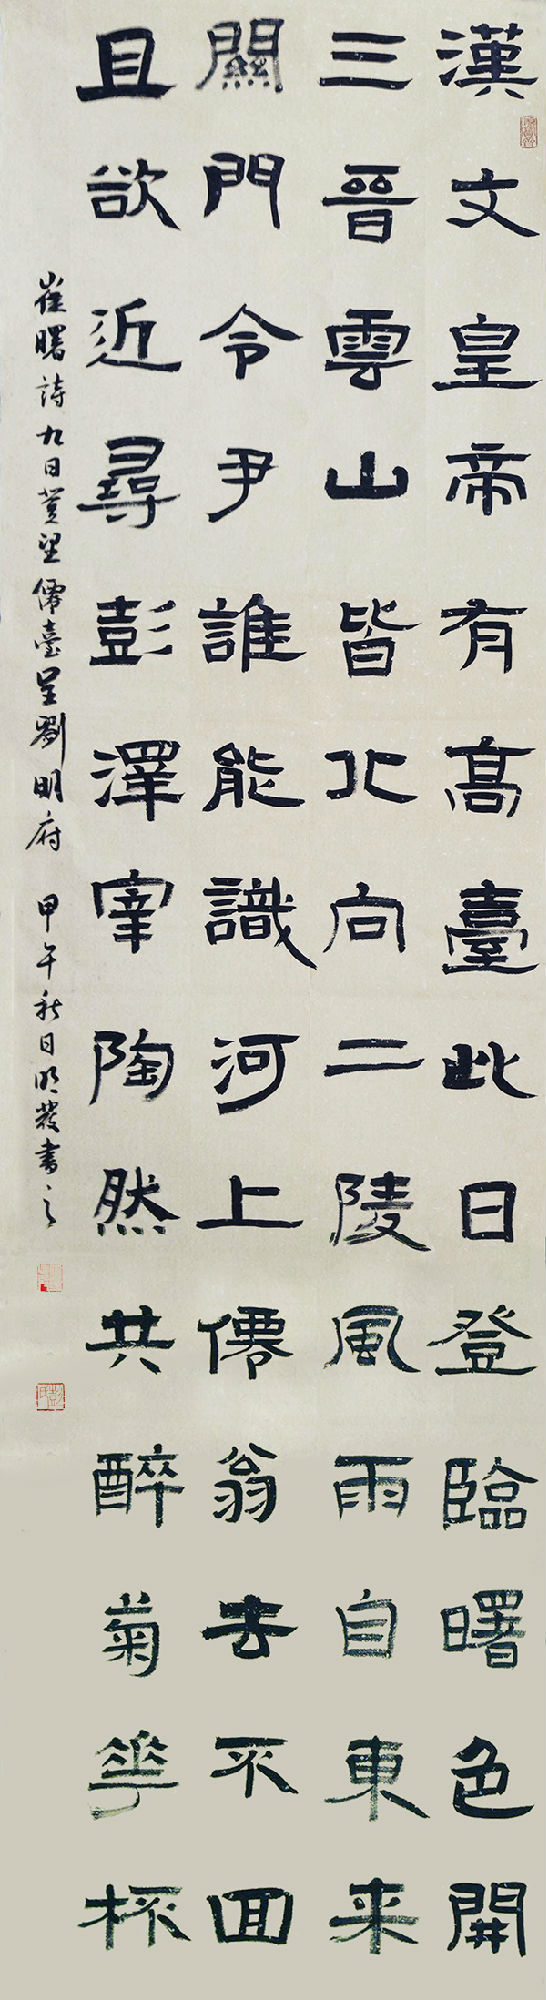 漢文皇帝有高臺此日登臨曙色開
三晉雲山皆北向二陵風雨自東来
關門令尹誰能識河上僊翁去不回
且欲近尋彭澤宰陶然共醉菊華杯
崔曙詩九日登望僊臺呈劉明府 甲午秋日明發書之